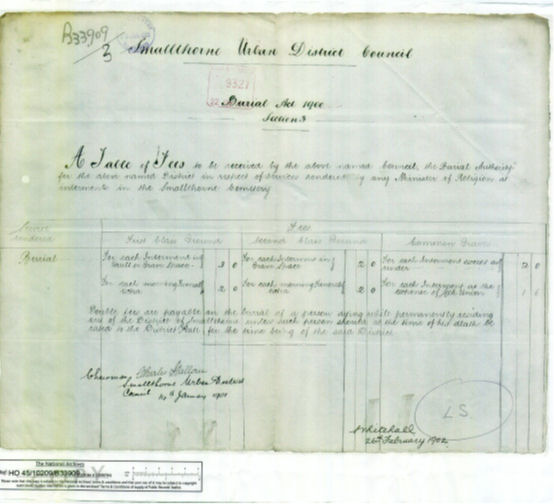 B33909
3
Smallthorne Urban District Council
9327
Burial Act 1900
Section 3
A Table of Fees to be received by the above named Council, the Burial Authority
for the above named District in respect of services rendered by any Minister of Religion at
interments in the Smallthorne Cemetery
Service rendered
Fees
First Class Ground
Second Class Ground
Common Graves
Burial
For each Interment in
Vault or Grave Space
3 0
For each Interment in
Grave Space
2 0
For each Interment
under
2 0
For each
2 0
For each
2 0
For each Interment at the
Union
1 6
Double fees are payable on the burial of a person dying while permanently residing
out of the District of Smallthorne unless such person should at the time of his death be
for the time being of the said District
Chairman Charles
Smallthorne Urban District
Council
14th January 1901
L.S.
Whitehall
26th February 1902
The National Archives
HO 45/10209/B33909